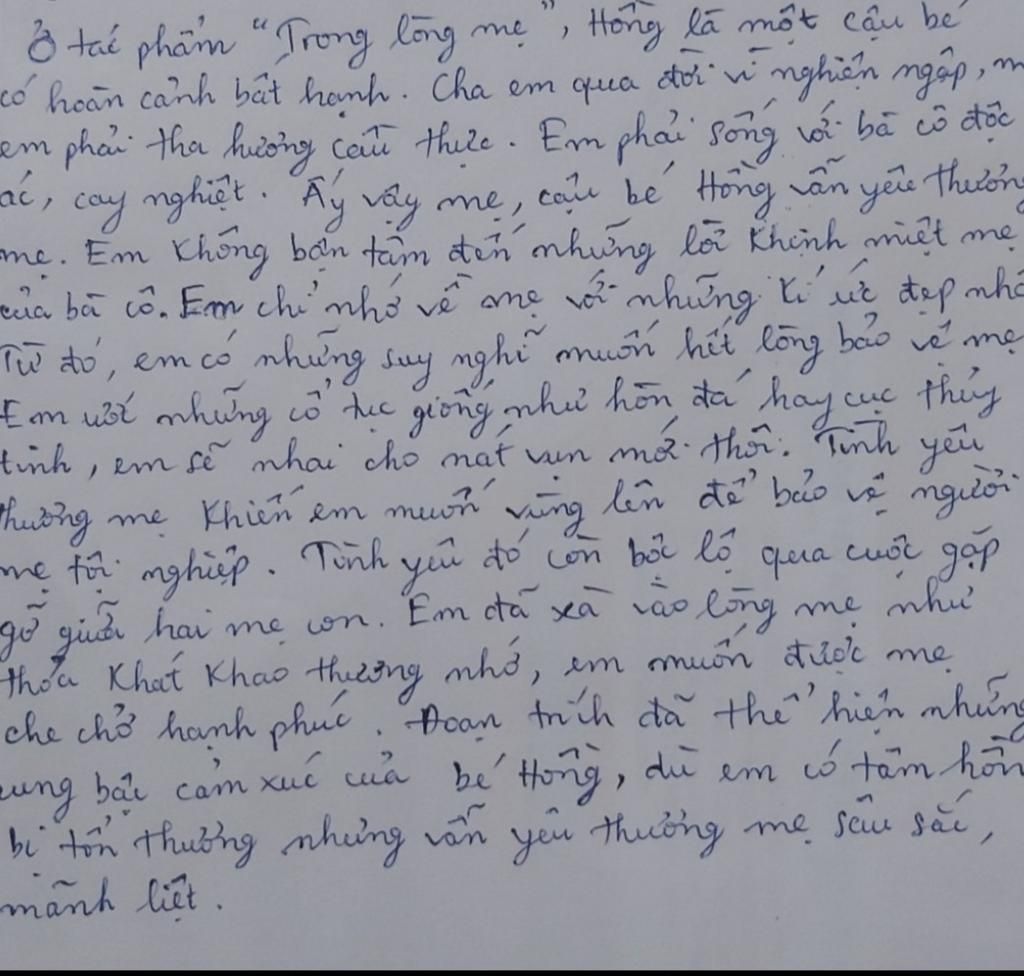 Ở tác phẩm "Trong lòng mẹ", Hồng là một cậu bé
có hoàn cảnh bất hạnh. Cha em qua đời vì nghiện ngập, m
em phải tha hương cầu thực. Em phải sống với bà cô độc
ác, cay nghiệt. Ấy vậy mẹ, cậu bé Hồng vẫn yêu thương
mẹ. Em không bận tâm đến những lời khinh miệt mẹ
của bà cô. Em chỉ nhớ về mẹ với những kí ức đẹp nhấ
Từ đó, em có những suy nghĩ muốn hết lòng bảo vệ mẹ
Em ước những cổ tục giống như hòn đá hay cục thủy
tinh, em sẽ nhai cho nát vụn mới thôi. Tình yêu
thương mẹ khiến em muốn vùng lên để bảo vệ người
mẹ tội nghiệp. Tình yêu đó còn bộc lộ qua cuộc gặp
gỡ giữa hai mẹ con. Em đã xà vào lòng mẹ như
thỏa khát khao thương nhớ, em muốn được mẹ
che chở hạnh phúc. Đoạn trích đã thể hiện những
cung bậc cảm xúc của bé Hồng, dù em có tâm hồn
bị tổn thương nhưng vẫn yêu thương mẹ sâu sắc,
mãnh liệt.